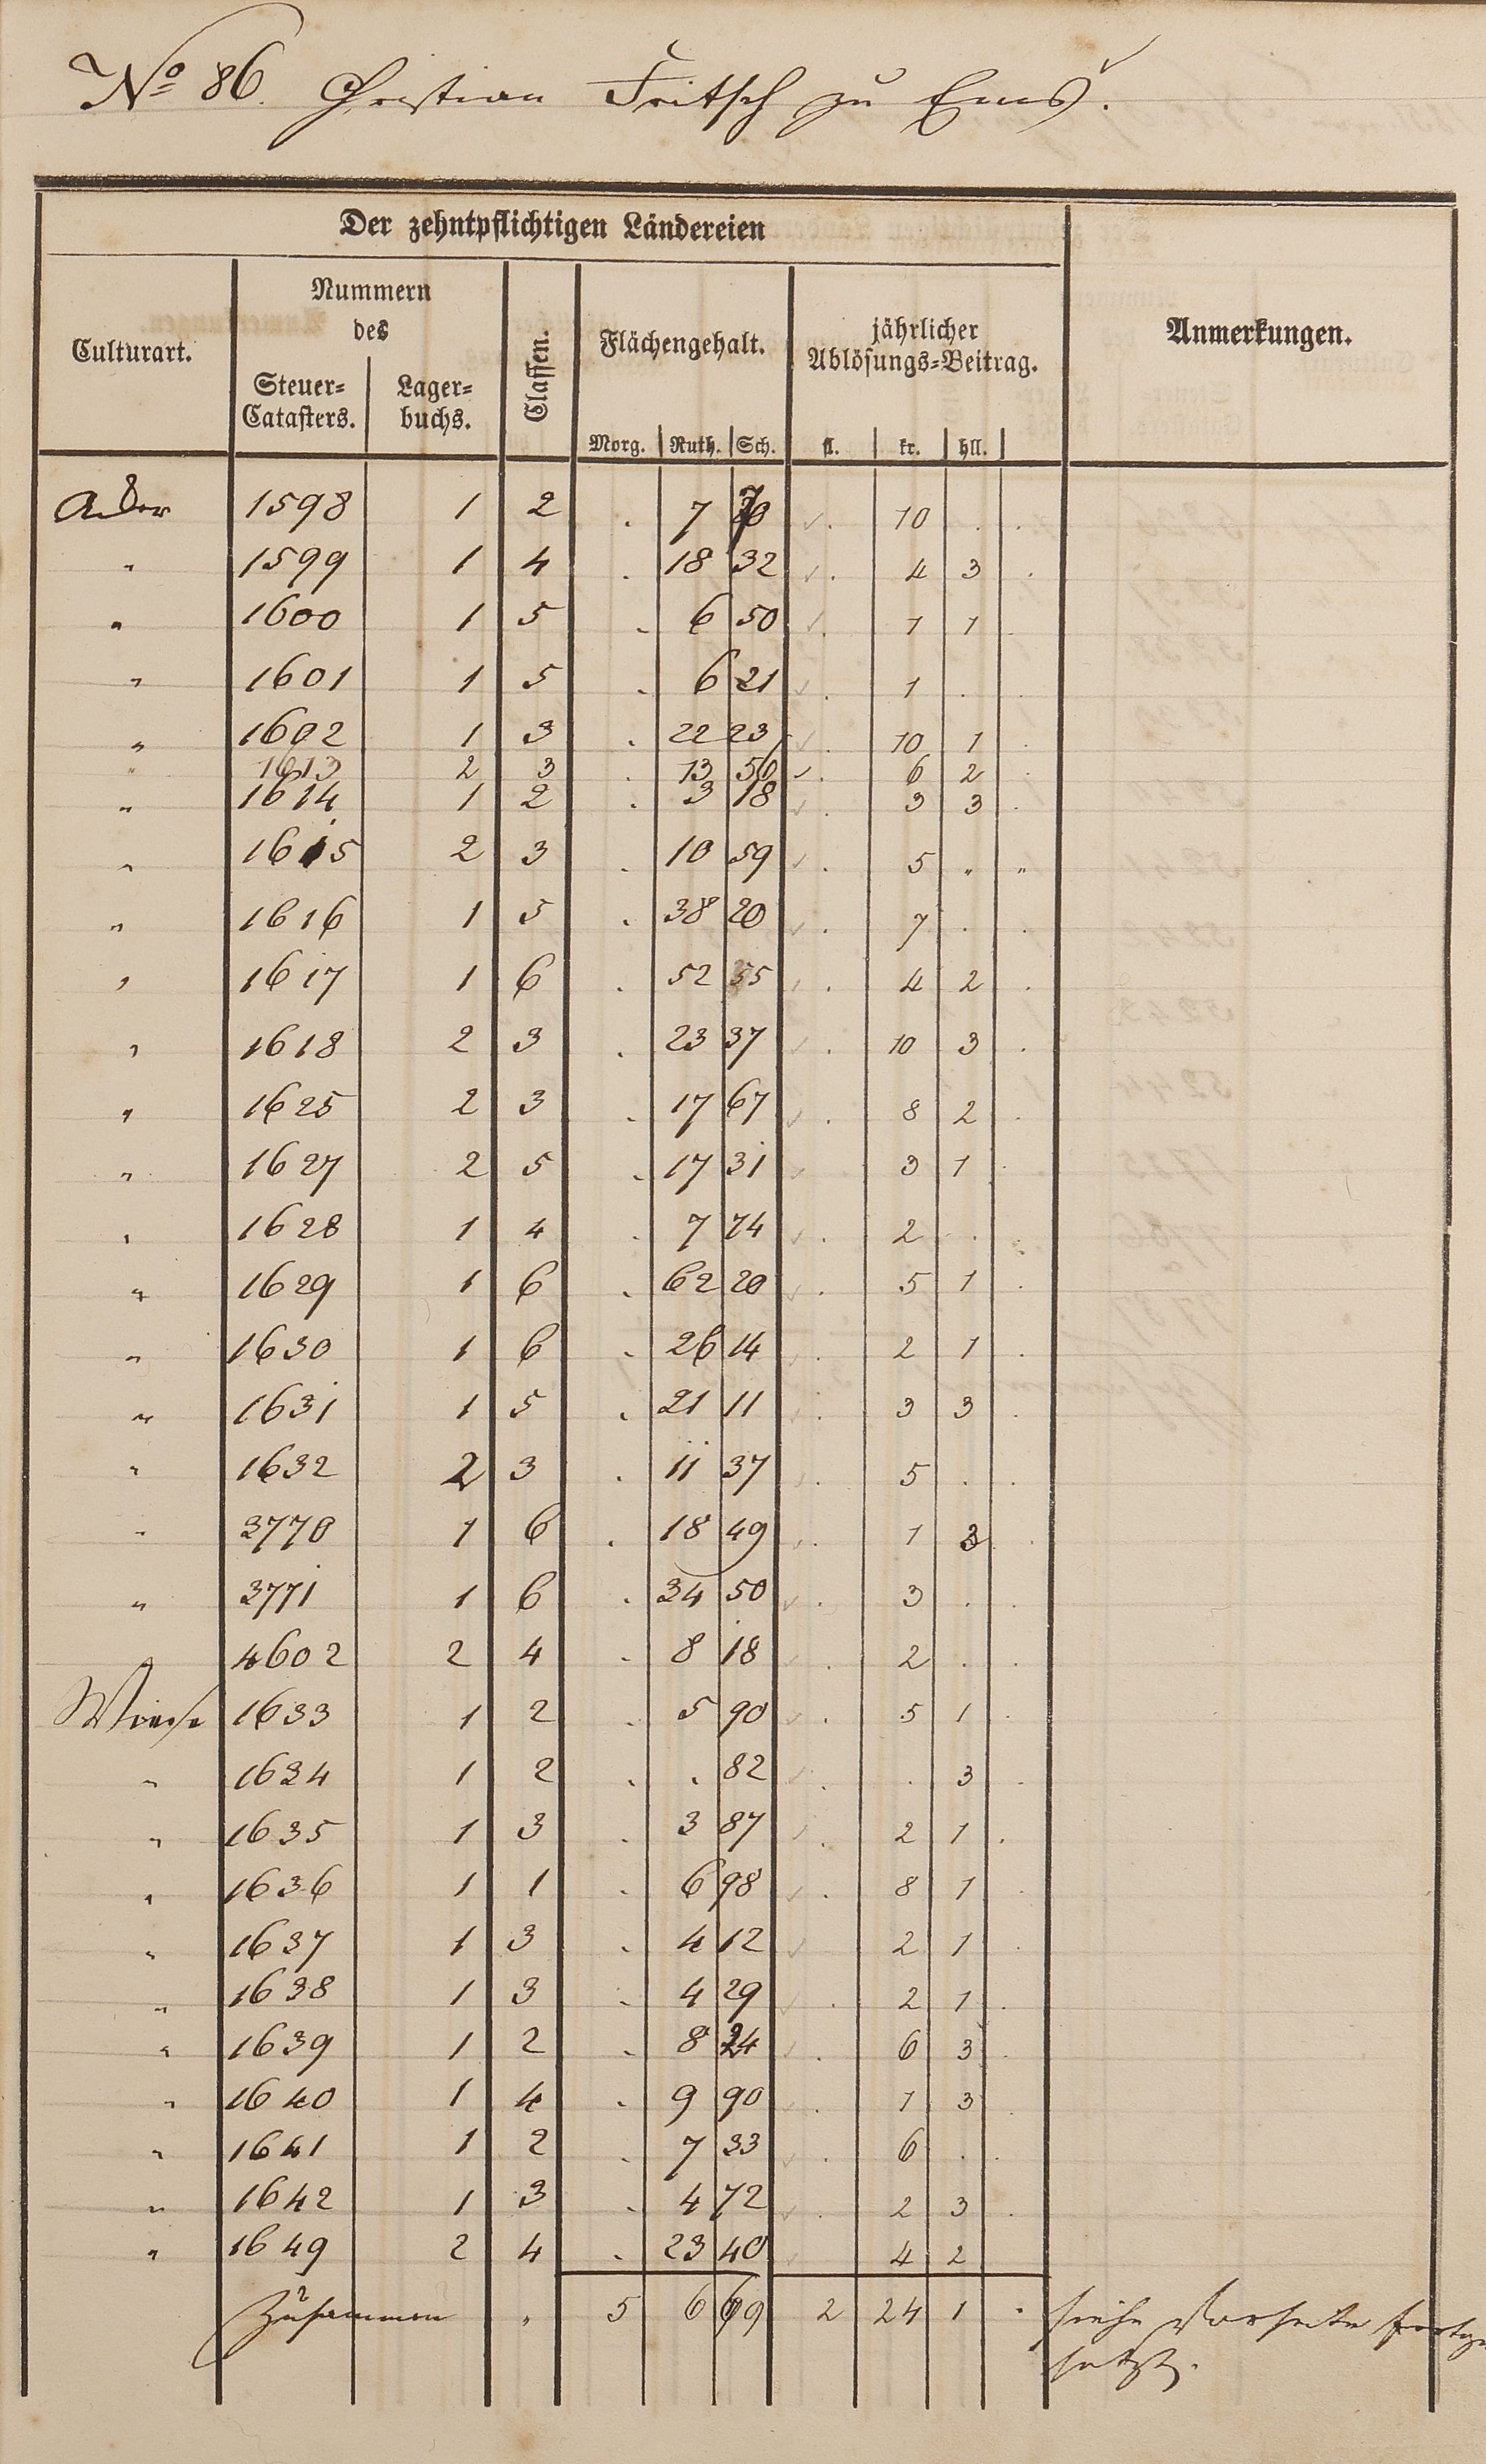 No 86. Christian Fritsch zu Ems.
Der zehntpflichtigen Ländereien
Culturart. Nummern des Steuer=Catasters. Lager=buchs. Classen. Flächengehalt. jährlicher Ablösungs=Beitrag. Anmerkungen.
Morg. Ruth. Sch. fl. kr. hll.
Acker 1598 1 2 . 7 70 . 10 . .
" 1599 1 4 . 18 32 . 4 3 .
" 1600 1 5 . 6 50 . 1 1 .
" 1601 1 5 . 6 21 . 1 . .
" 1602 1 3 . 22 23 . 10 1 .
" 1613 2 3 . 13 50 . 6 2 .
" 1614 1 2 . 3 18 . 3 3 .
" 1615 2 3 . 10 59 . 5 " "
" 1616 1 5 . 38 20 . 7 . .
" 1617 1 6 . 52 55 . 4 2 .
" 1618 2 3 . 23 37 . 10 3 .
" 1625 2 3 . 17 67 . 8 2 .
" 1627 2 5 . 17 31 3 1 .
" 1628 1 4 . 7 74 . 2 . .
" 1629 1 6 . 62 20 . 5 1 .
" 1630 1 6 . 26 14 . 2 1 .
" 1631 1 5 . 21 11 . 3 3 .
" 1632 2 3 . 11 37 . 5 . .
" 3770 1 6 . 18 49 . 1 3 .
" 3771 1 6 . 34 50 . 3 . .
" 4602 2 4 . 8 18 . 2 . .
Wiese 1633 1 2 . 5 90 . 5 1 .
" 1634 1 2 . . 82 . . 3 .
" 1635 1 3 . 3 87 . 2 1 .
" 1636 1 1 . 6 98 . 8 1 .
" 1637 1 3 . 4 12 2 1 .
" 1638 1 3 . 4 29 . 2 1 .
" 1639 1 2 . 8 24 . 6 3 .
" 1640 1 4 . 9 90 . 1 3 .
" 1641 1 2 . 7 33 . 6 . .
" 1642 1 3 . 4 72 . 2 3 .
" 1649 2 4 . 23 40 4 2
Zusammen " 5 6 69 2 24 1 . siehe Vorseite fortge
setzt.